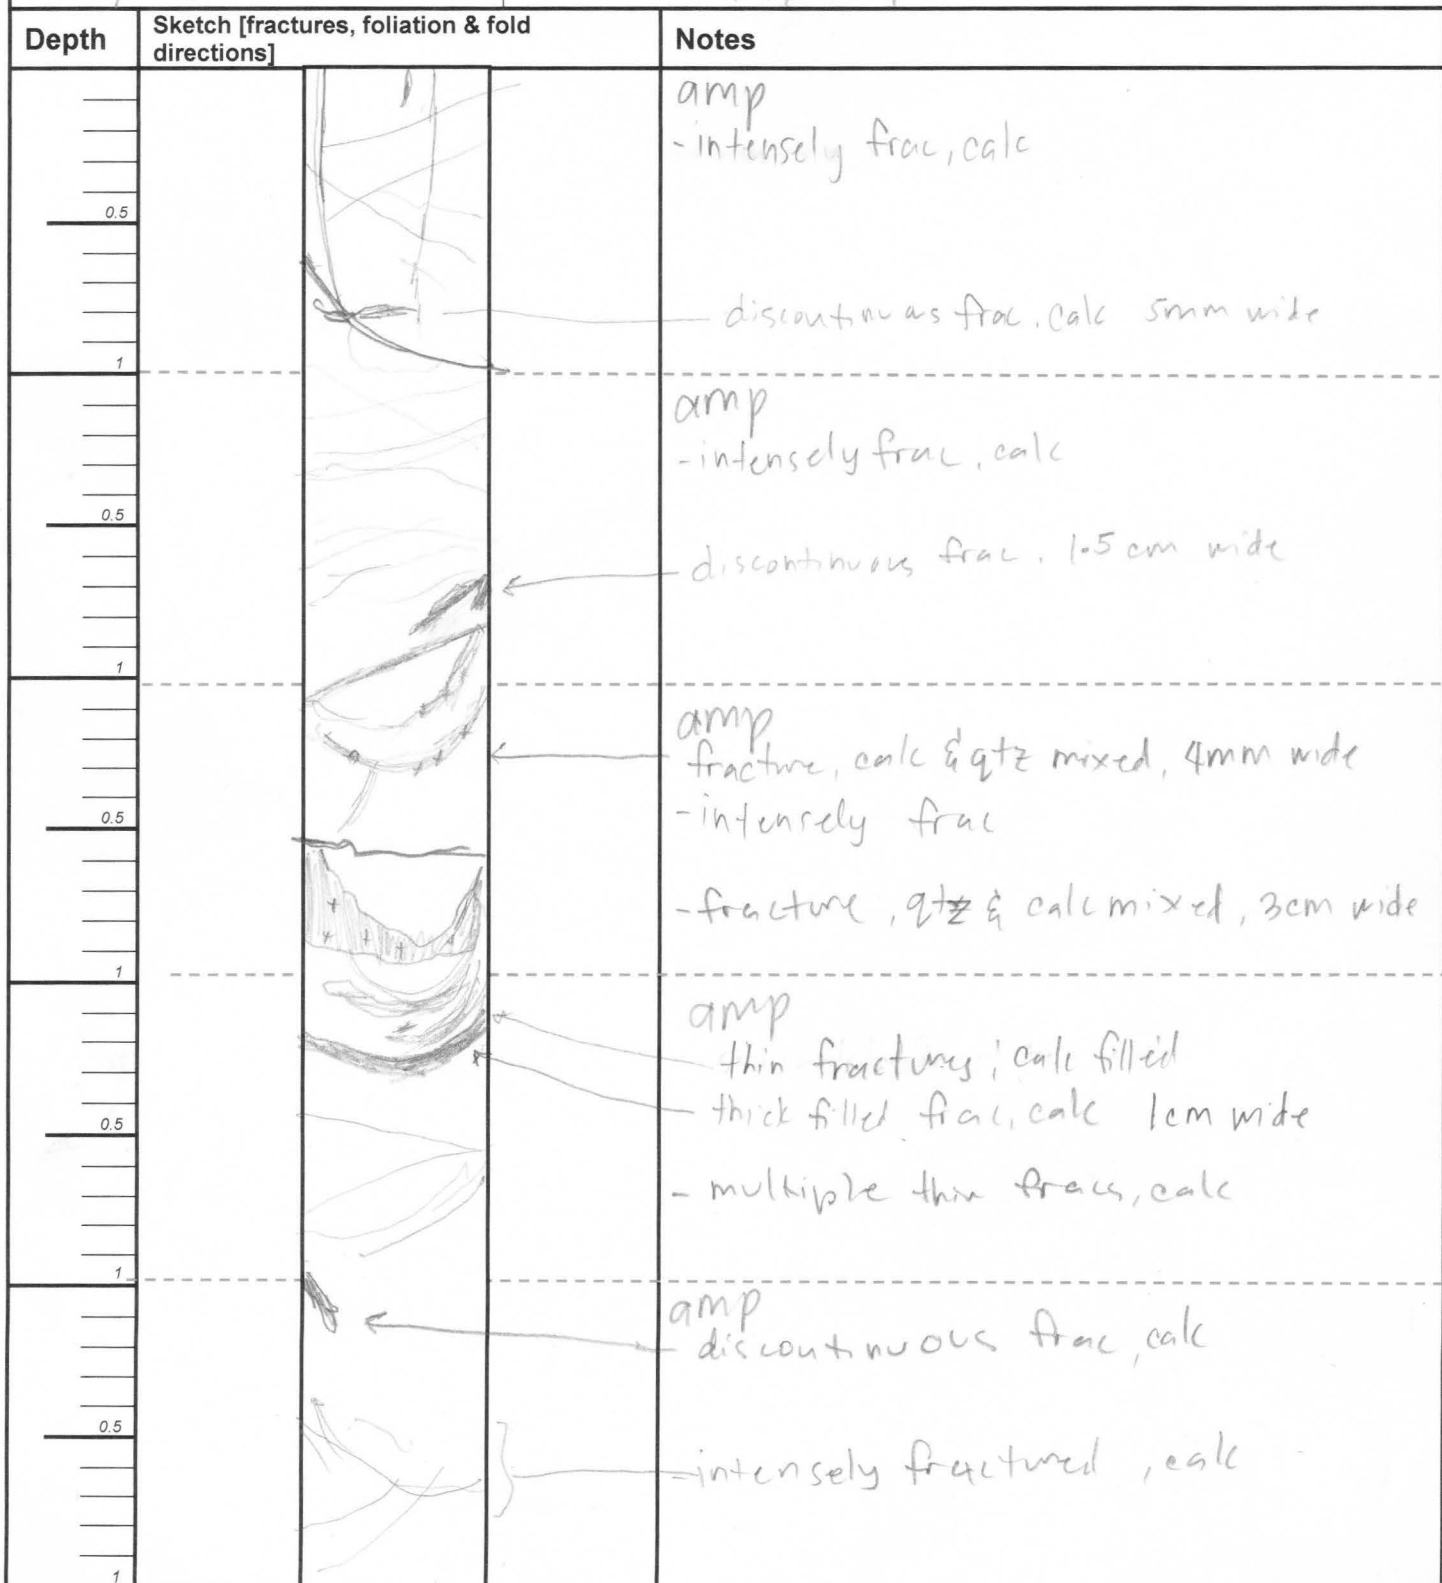 Depth
Sketch [fractures, foliation & fold
directions]
Notes
amp
- intensely frac, calc
0.5
discontinuas frac. calc 5mm wide
1
amp
- intensely frac, calc
0.5
discontinuous frac. 1.5 cm wide
1
amp
fracture, calc & qtz mixed, 4mm wide
- intensely frac
0.5
- fracture, qtz & calc mixed, 3cm wide
1
amp
thin fractures; calc filled
thick filled frac, calc 1cm wide
0.5
- multiple thin fracs, calc
1
amp
discontinuous frac, calc
0.5
- intensely fractured, calc
1